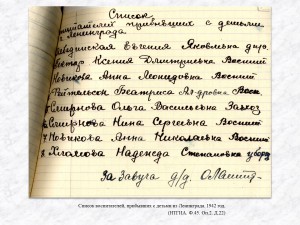 Список
воспитателей прибывших с детьми
из Ленинграда
Евгения Яковлевна
Ксения Дмитриевна Воспит
Новикова Анна Леонидовна Воспит
Беатриса Воси
5 Смирнова Ольга Васильевна Завхоз
6 Смирнова Нина Сергеевна Воспит
7 Новикова Анна Николаевна Воспит
8 Надежда Степановна уборщ
За Завуча д/д.
Список воспитателей, прибывших с детьми из Ленинграда. 1942 год.
Ф.45. Оп.2. Д.22)